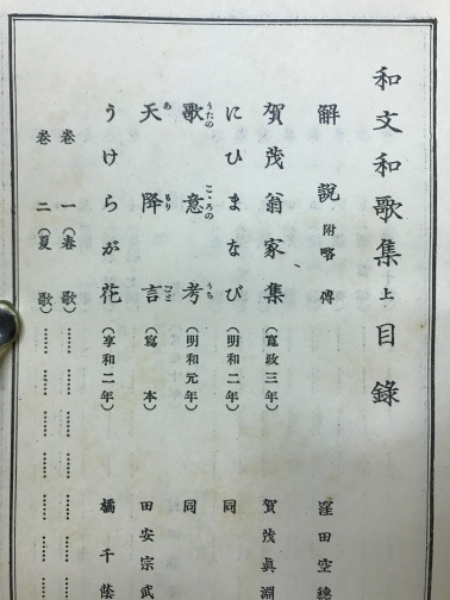 和文和歌集上目錄
解說附略傳 窪田空穗
賀茂翁家集(寬政三年) 賀茂眞淵
にひまなび(明和二年) 同
歌意考(明和元年) 同
うたのこころのうち
天降言(寫本) 田安宗武
あもりごと
うけらが花(享和二年) 橘千蔭
卷一(春歌)………………
卷二(夏歌)………………